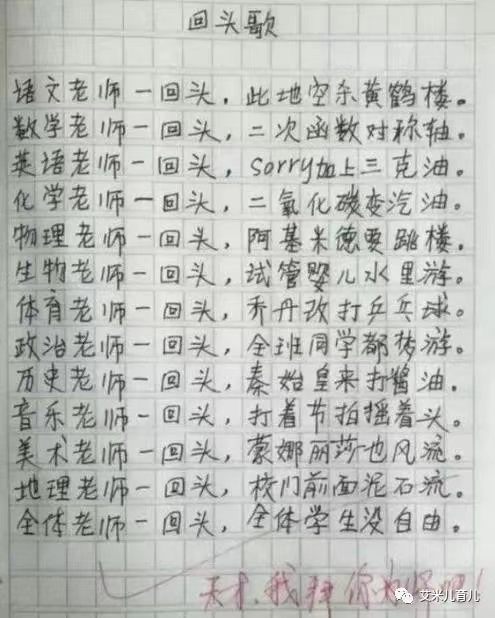 回头歌
语文老师一回头，此地空余黄鹤楼。
数学老师一回头，二次函数对称轴。
英语老师一回头，sorry加上三克油。
化学老师一回头，二氧化碳变汽油。
物理老师一回头，阿基米德要跳楼。
生物老师一回头，试管婴儿水里游。
体育老师一回头，乔丹改打乒乓球。
政治老师一回头，全班同学都梦游。
历史老师一回头，秦始皇来打酱油。
音乐老师一回头，打着节拍摇着头。
美术老师一回头，蒙娜丽莎也风流。
地理老师一回头，校门前面泥石流。
全体老师一回头，全体学生没自由。
天才，我拜你为师吧！
艾米儿育儿